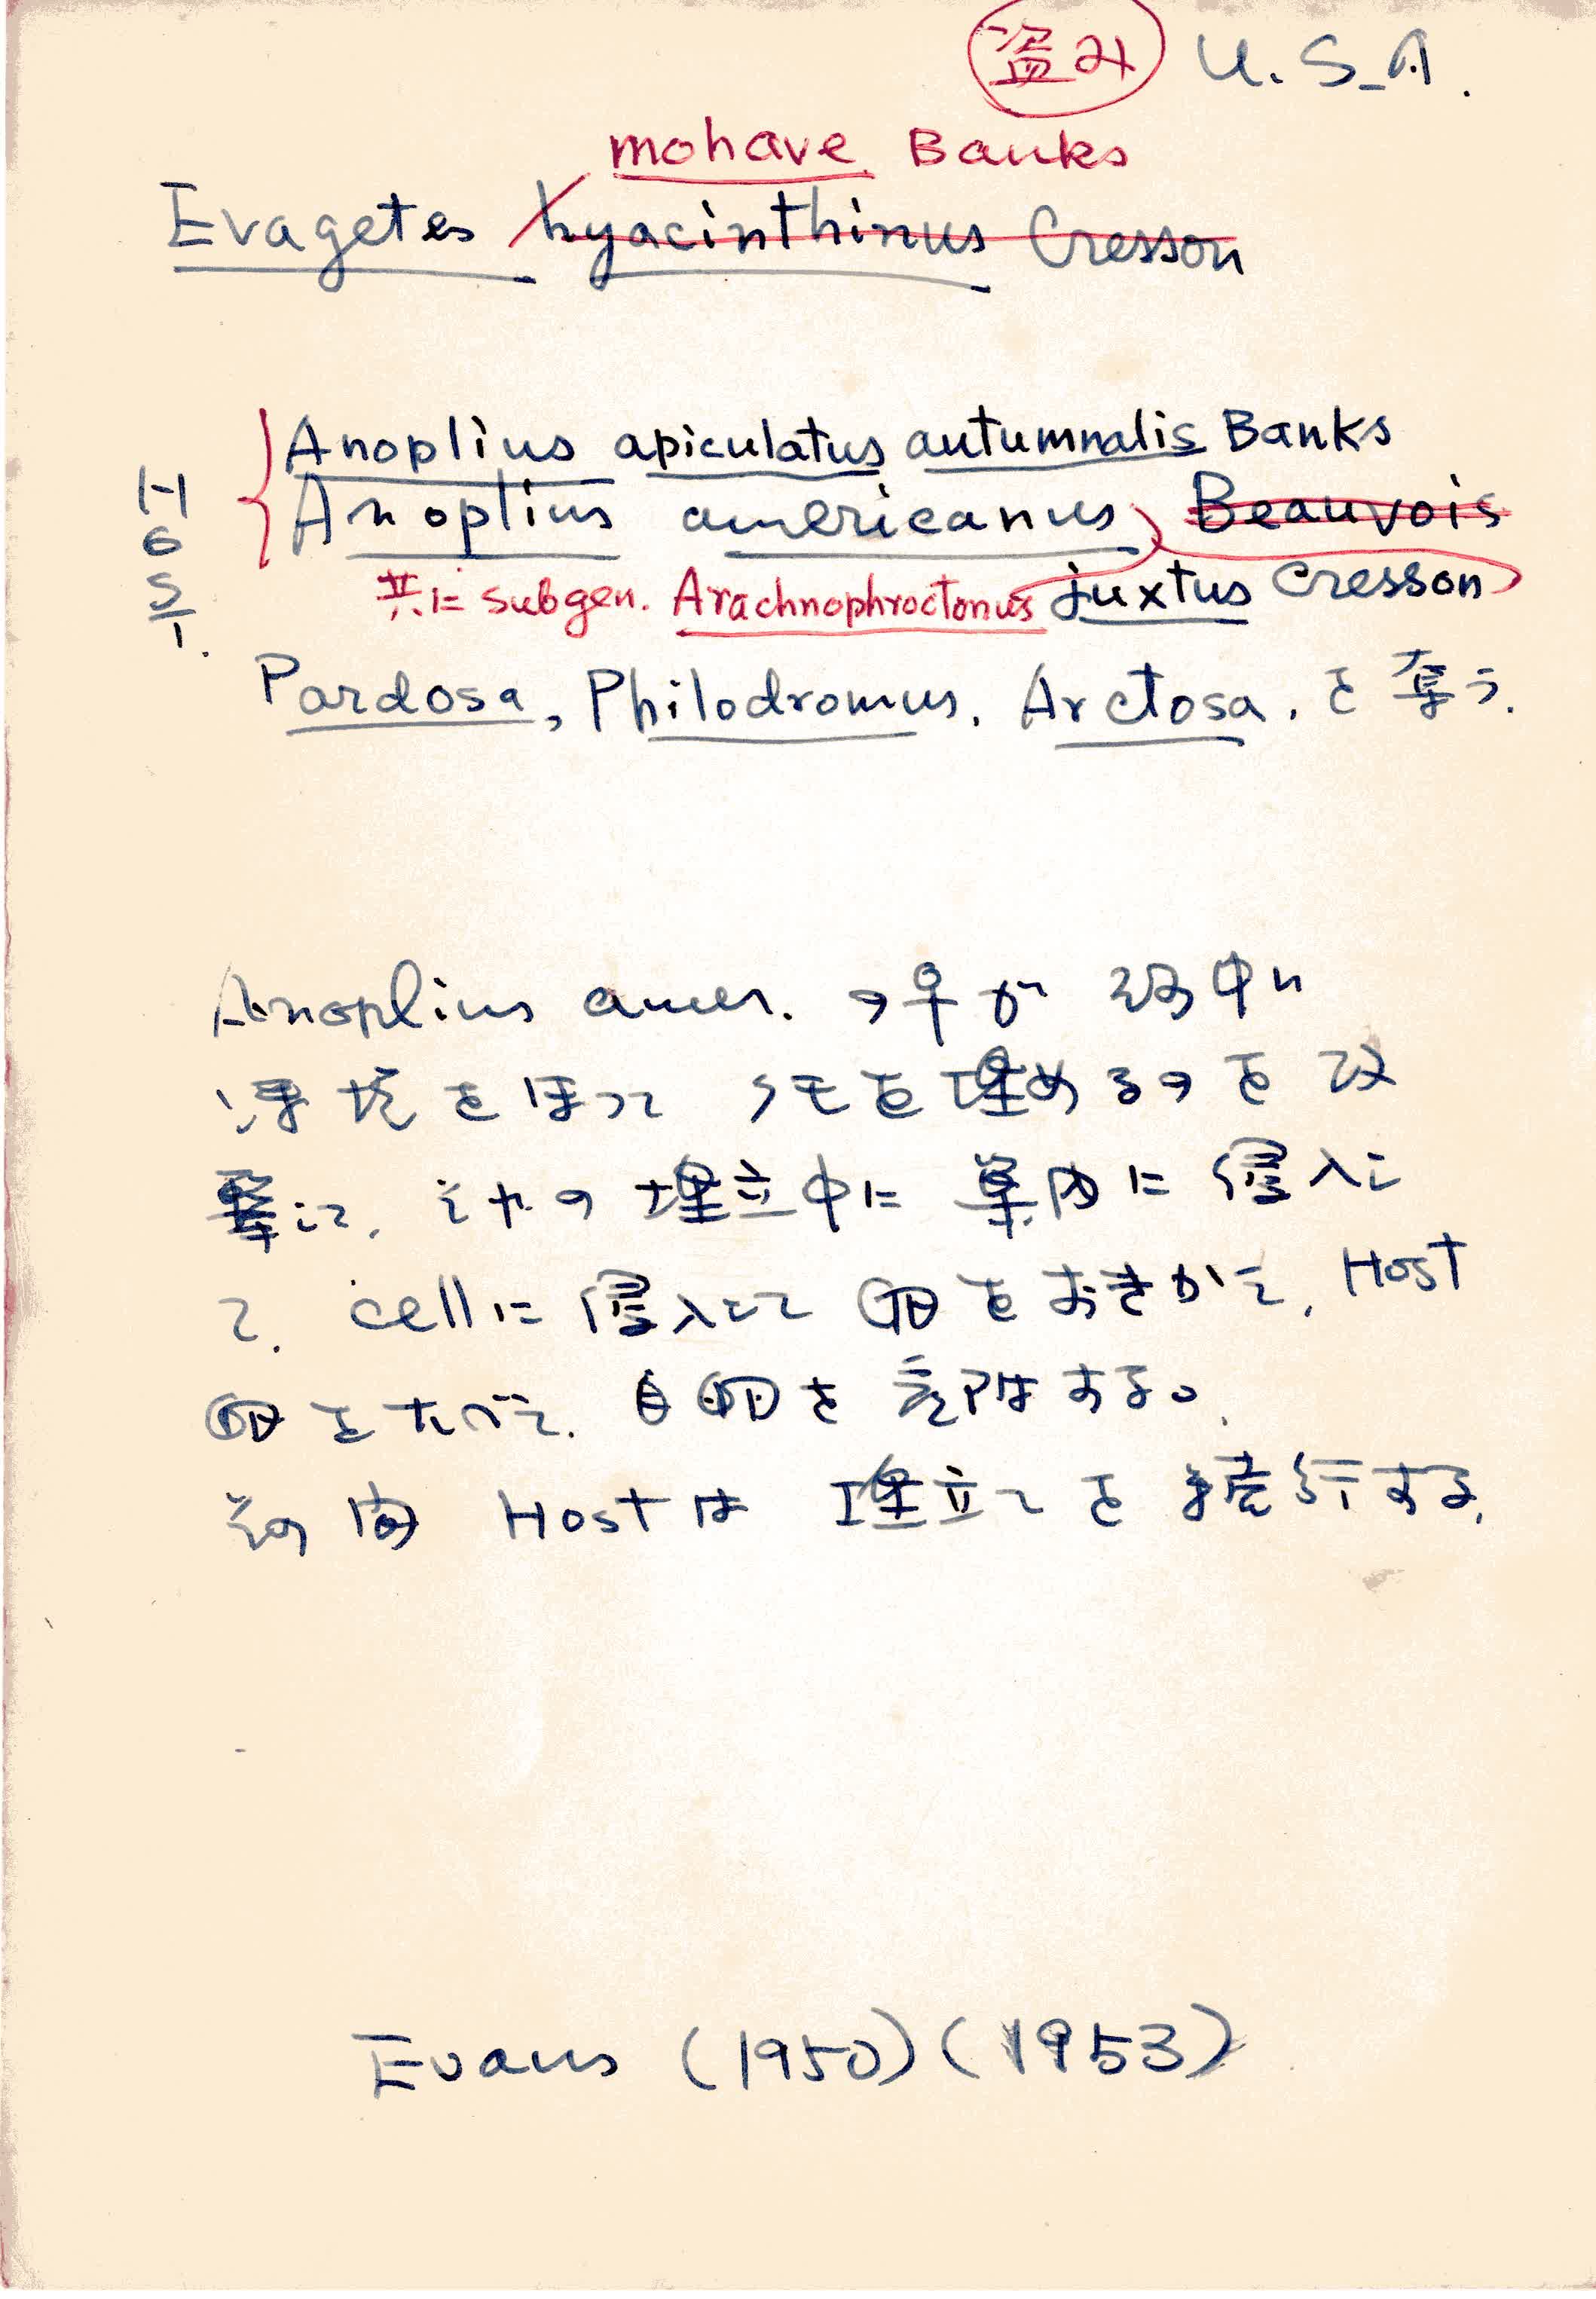 盗み U.S.A.
mohave Banks
Evagetes hyacinthinus Cresson
Anoplius apiculatus autumnalis Banks
Anoplius americanus Beauvois
共に subgen. Arachnophroctonus juxtus Cresson
Host
Pardosa, Philodromus, Arctosa, を奪う.
Anoplius amer. の♀が 砂中に
浅坑をほって クモを埋めるのを攻
撃して, その埋立中に巣内に侵入し
て, cellに侵入して卵をおきかえ, Host
卵をたべて, 自卵を産附する。
その間 Hostは 埋立てを続行する.
Evans (1950) (1953)